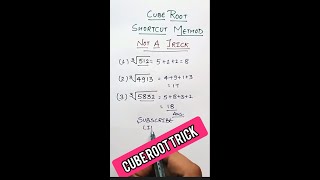 CUBE ROOT
SHORTCUT METHOD
NOT A TRICK
(1) ∛512 = 5+1+2 = 8
(2) ∛4913 = 4+9+1+3
= 17
(3) ∛5832 = 5+8+3+2
= 18
Ans.
SUBSCRIBE
CUBE ROOT TRICK